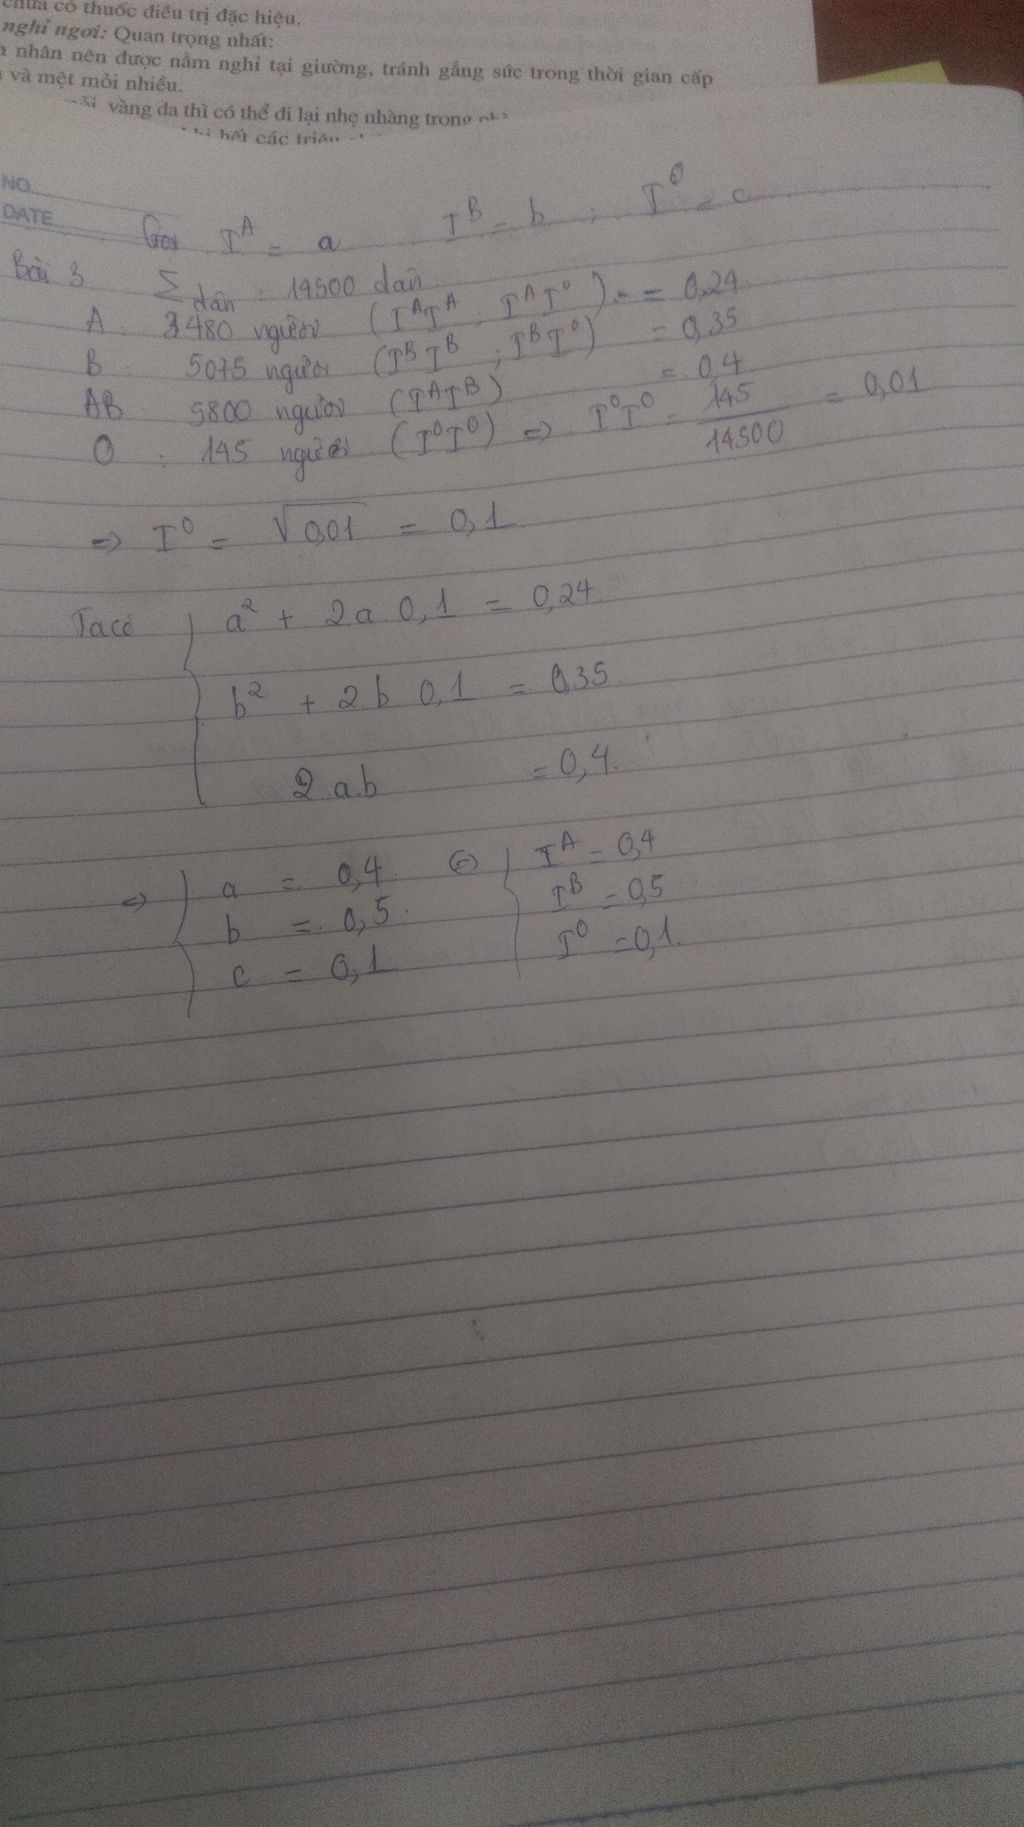 chưa có thuốc điều trị đặc hiệu.
nghỉ ngơi: Quan trọng nhất:
nhân nên được nằm nghỉ tại giường, tránh gắng sức trong thời gian cấp
và mệt mỏi nhiều.
vàng da thì có thể đi lại nhẹ nhàng trong
hết các triệu
NO.
DATE
Gọi I^A = a I^B = b ; I^O = c
Bài 3 Σ dân : 14500 dân
A : 3480 người (I^A I^A ; I^A I^O) = 0,24
B : 5075 người (I^B I^B ; I^B I^O) = 0,35
AB : 5800 người (I^A I^B) = 0,4
O : 145 người (I^O I^O) => I^O I^O = 145/14500 = 0,01
=> I^O = √0,01 = 0,1
Ta có { a² + 2a 0,1 = 0,24
b² + 2.b 0,1 = 0,35
2 a.b = 0,4.
=> { a = 0,4 <=> { I^A = 0,4
b = 0,5 I^B = 0,5
c = 0,1 I^O = 0,1.